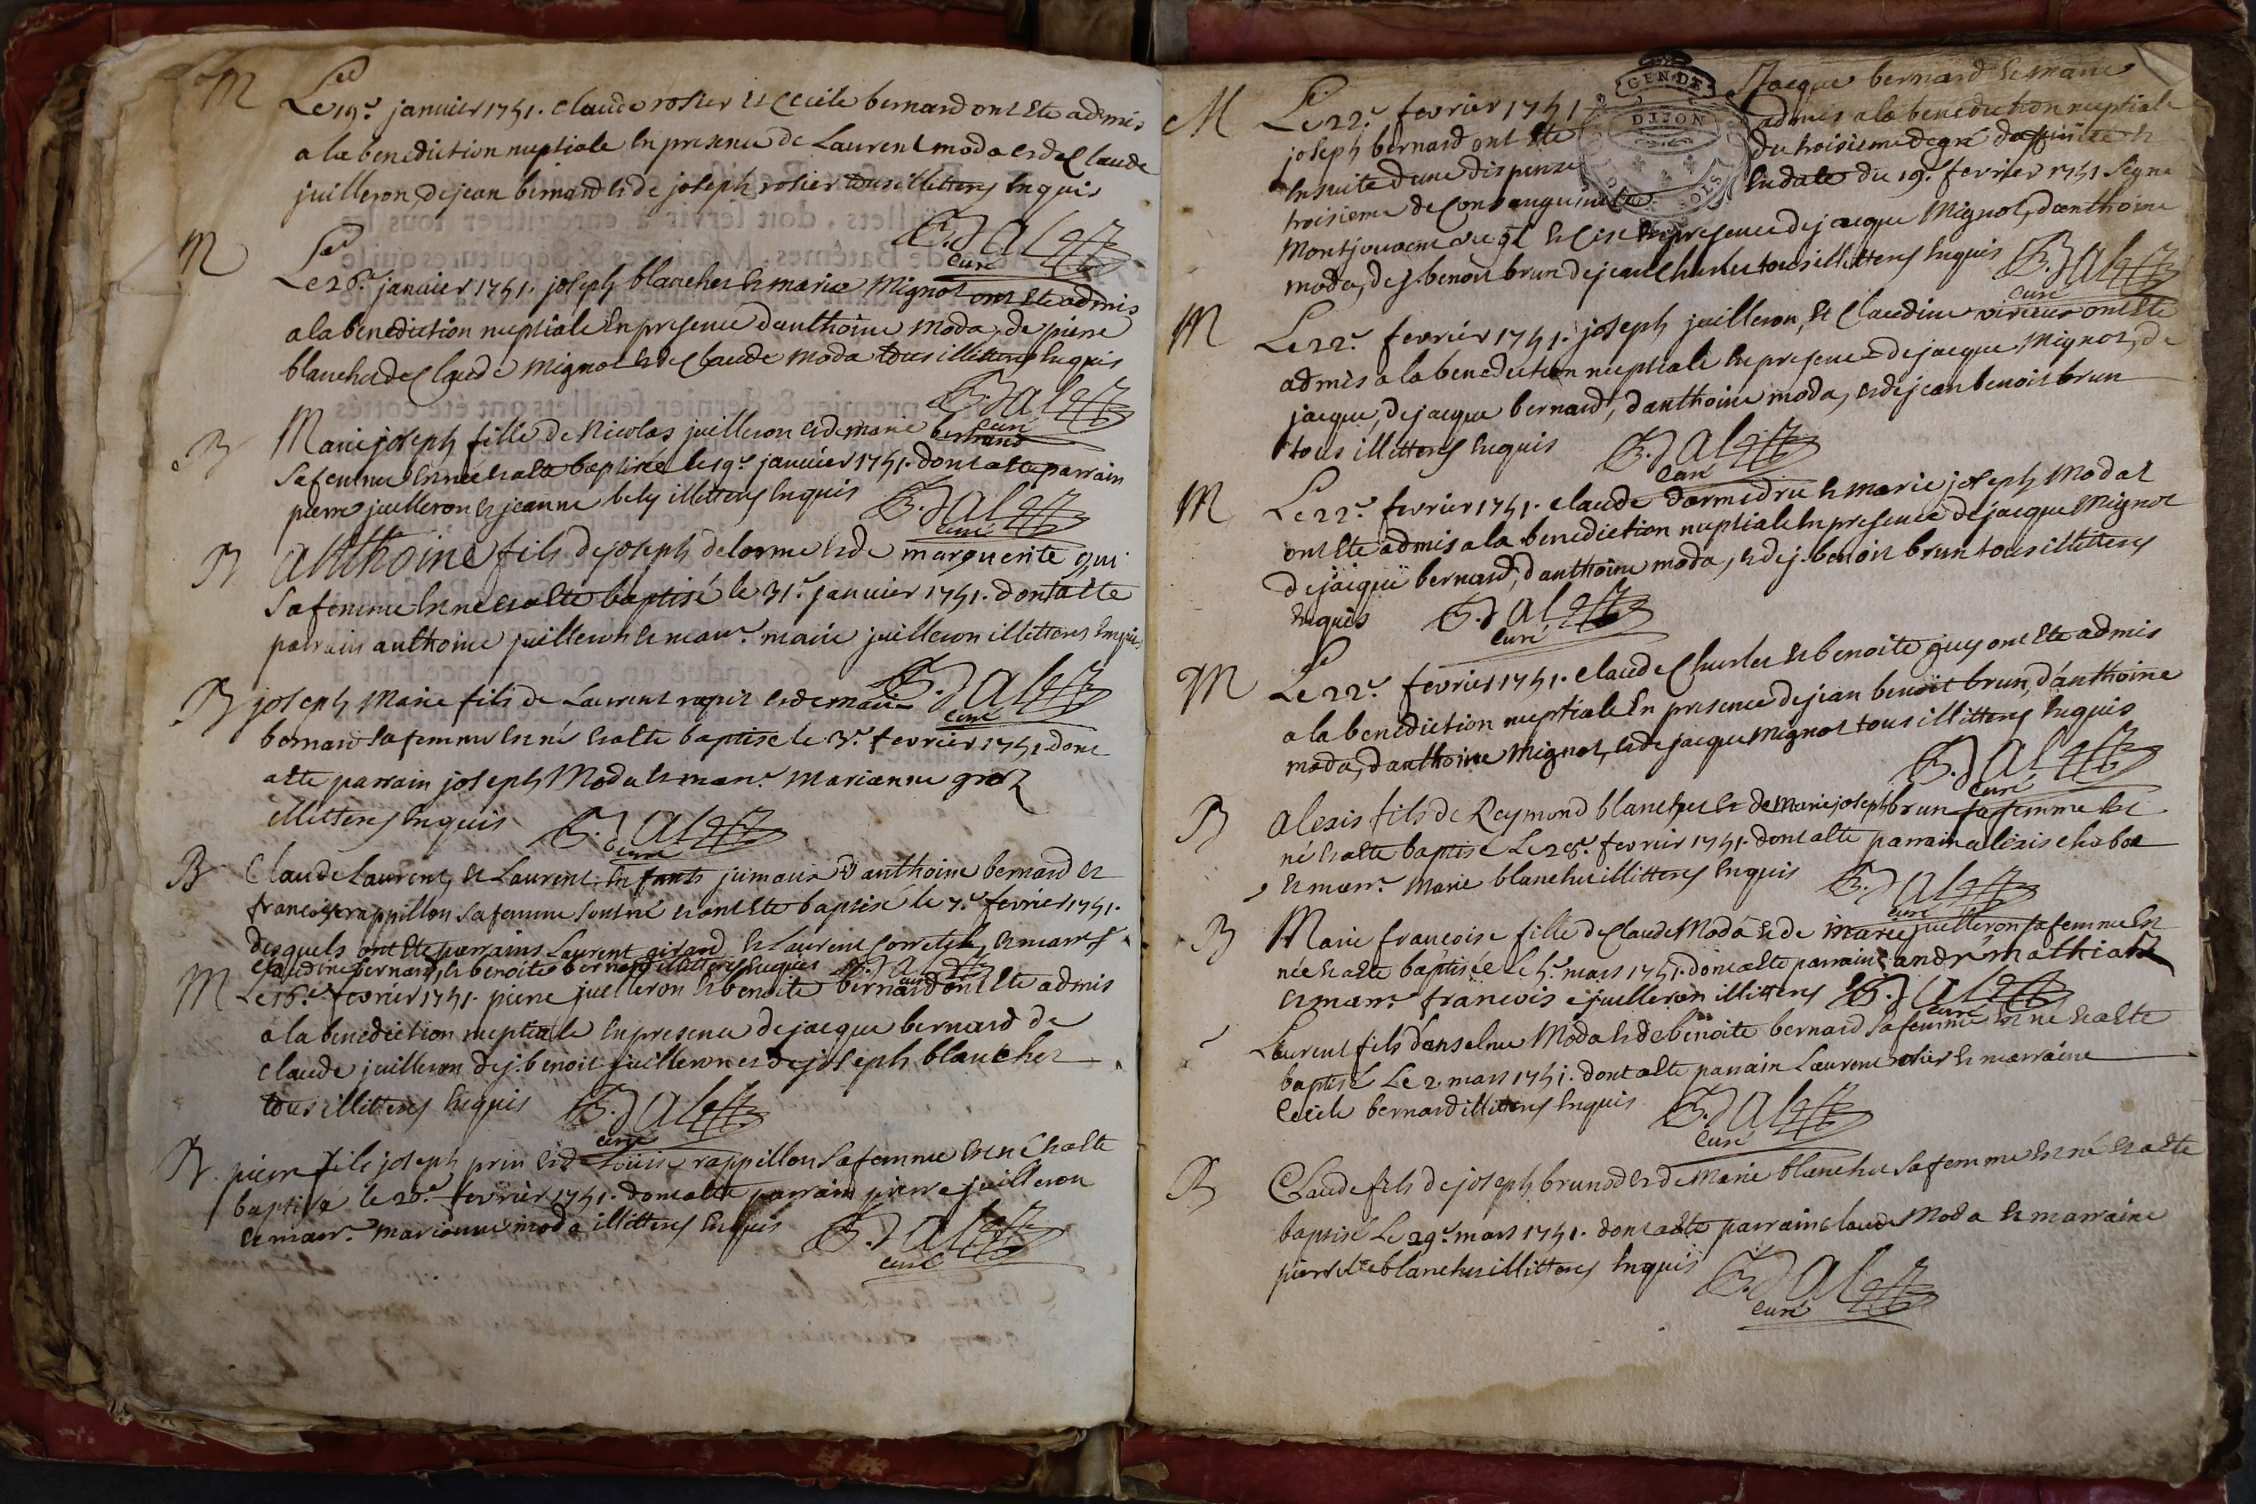 M Le 19e janvier 1751. Claude rosier et Cecile bernard ont ete admis
a la benediction nuptiale en presence de Laurent moda et de Claude
juilleron, de jean bernard et de joseph rosier tous illitteres enquis
B. Daloz
curé
M Le 26e janvier 1751. joseph blanchet et marie Mignot ont ete admis
a la benediction nuptiale en presence danthoine moda, de pierre
blanchet de Claude mignot et de Claude moda tous illitteres enquis
B. Daloz
curé
B Marie joseph fille de Nicolas juilleron et de marie bertrand
sa femme est née et a ete baptisée le 19e janvier 1751. dont a ete parrain
pierre juilleron et jeanne bely illitteres enquis
B. Daloz
curé
B Anthoine fils de joseph delorme et de marguerite gui
sa femme est né et a ete baptisé le 31e janvier 1751. dont a ete
parrain anthoine juilleron et marr. marie juilleron illitteres enquis
B. Daloz
curé
B joseph Marie fils de Laurent et de marie
bernard sa femme est né et a ete baptisé le 3e fevrier 1751. dont
a ete parrain joseph Moda et marr. marianne groz
illitteres enquis B. Daloz
curé
B Claude Laurent, et Laurent enfants jumaux danthoine bernard et
francoise rappillon sa femme sont né et ont ete baptisé le 7e fevrier 1751.
desquels ont ete parrains Laurent girard et Laurent et marr.
Claudine bernard, et benoite bernard illitteres enquis B. Daloz
curé
M Le 16e fevrier 1751. pierre juilleron et benoite bernard ont ete admis
a la benediction nuptiale en presence de jacque bernard de
claude juilleron de j. benoit juilleron et de joseph blanchet
tous illitteres enquis B. Daloz
curé
B pierre fils joseph prin et de Loüise rappillon sa femme est né et a ete
baptisé le 20e fevrier 1751. dont a ete parrain pierre juilleron
et marr. marianne moda illitteres enquis B. Daloz
curé
GEN. DE
DIJON
M Le 22e fevrier 1751 Jacque bernard et marie
joseph bernard ont ete admis a la benediction nuptiale
ensuite dune dispense du troisieme degré daffinitee et
troisieme de Consanguinité en date du 19e fevrier 1751 Signé
Montjouvent vic gl et cise en presence de jacque Mignot, danthoine
moda, de j. benoit brun de jean Charlet tous illitteres enquis B. Daloz
curé
M Le 22e fevrier 1751. joseph juilleron, et Claudine virieux ont ete
admis a la benediction nuptiale en presence de jacque Mignot, de
jacque, de jacque bernard, danthoine moda, et de jean benoit brun
tous illitteres enquis B. Daloz
curé
M Le 22e fevrier 1751. claude darmedru et marie joseph Modat
ont ete admis a la benediction nuptiale en presence de jacque Mignot
de jacque bernard, danthoine moda, et de j. benoit brun tous illitteres
enquis B. Daloz
curé
M Le 22e fevrier 1751. claude Charlet et benoite guy ont ete admis
a la benediction nuptiale en presence de jean benoit brun, danthoine
moda, danthoine Mignot, et de jacque mignot tous illitteres enquis
B. Daloz
curé
B Alexis fils de Reymond blanchet et de Marie joseph brun sa femme est
né et a ete baptisé Le 28e fevrier 1751. dont a ete parrain alexis chabot
et marr. Marie blanchet illitteres enquis B. Daloz
curé
B Marie francoise fille de Claude Moda et de marie juilleron sa femme est
née et a ete baptisée Le 5e mars 1751. dont a ete parrain andré mathieu
et marr. francoise juilleron illitteres B. Daloz
curé
Laurent fils danselme Moda et de benoite bernard sa femme est né et a ete
baptisé Le 2. mars 1751. dont a ete parrain Laurent rosier et marraine
Cecile bernard illitteres enquis B. Daloz
curé
B Claude fils de joseph brunod et de Marie blanchet sa femme est né et a ete
baptisé Le 29e mars 1751. dont a ete parrain claude Moda et marraine
pierrette blanchet illitteres enquis B. Daloz
curé